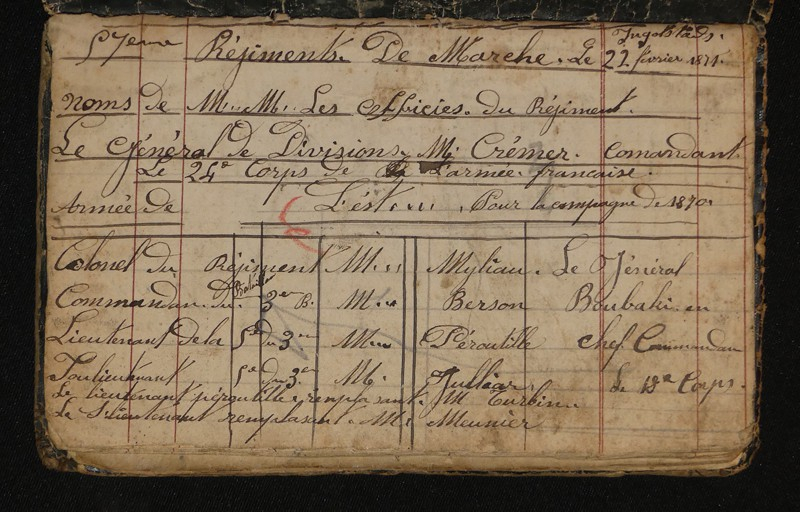 57eme Régiments. De Marche. Le 22 février 1871.
Ingolstads.
noms de M.. M.. Les officies. du Régiment.
Le Général de Divisions, M. Crémer. Comandant
Le 24e Corps de L'armée française.
Armée de L'ést.... Pour la compagne de 1870.
Colonel du Régiment M... Myliau. Le Jénéral
Commandan. du 3em B. M... Berson Boubaki. en
Bataillon
Lieutenant de la 5e du 3em M... Péroutille chef Commandan
Soulieutenant 5e du 3em M. Julliar Le 18e Corps.
Le lieutenant remplasant. M Turbin
Le S. lieutenant remplasant. M. Meunier